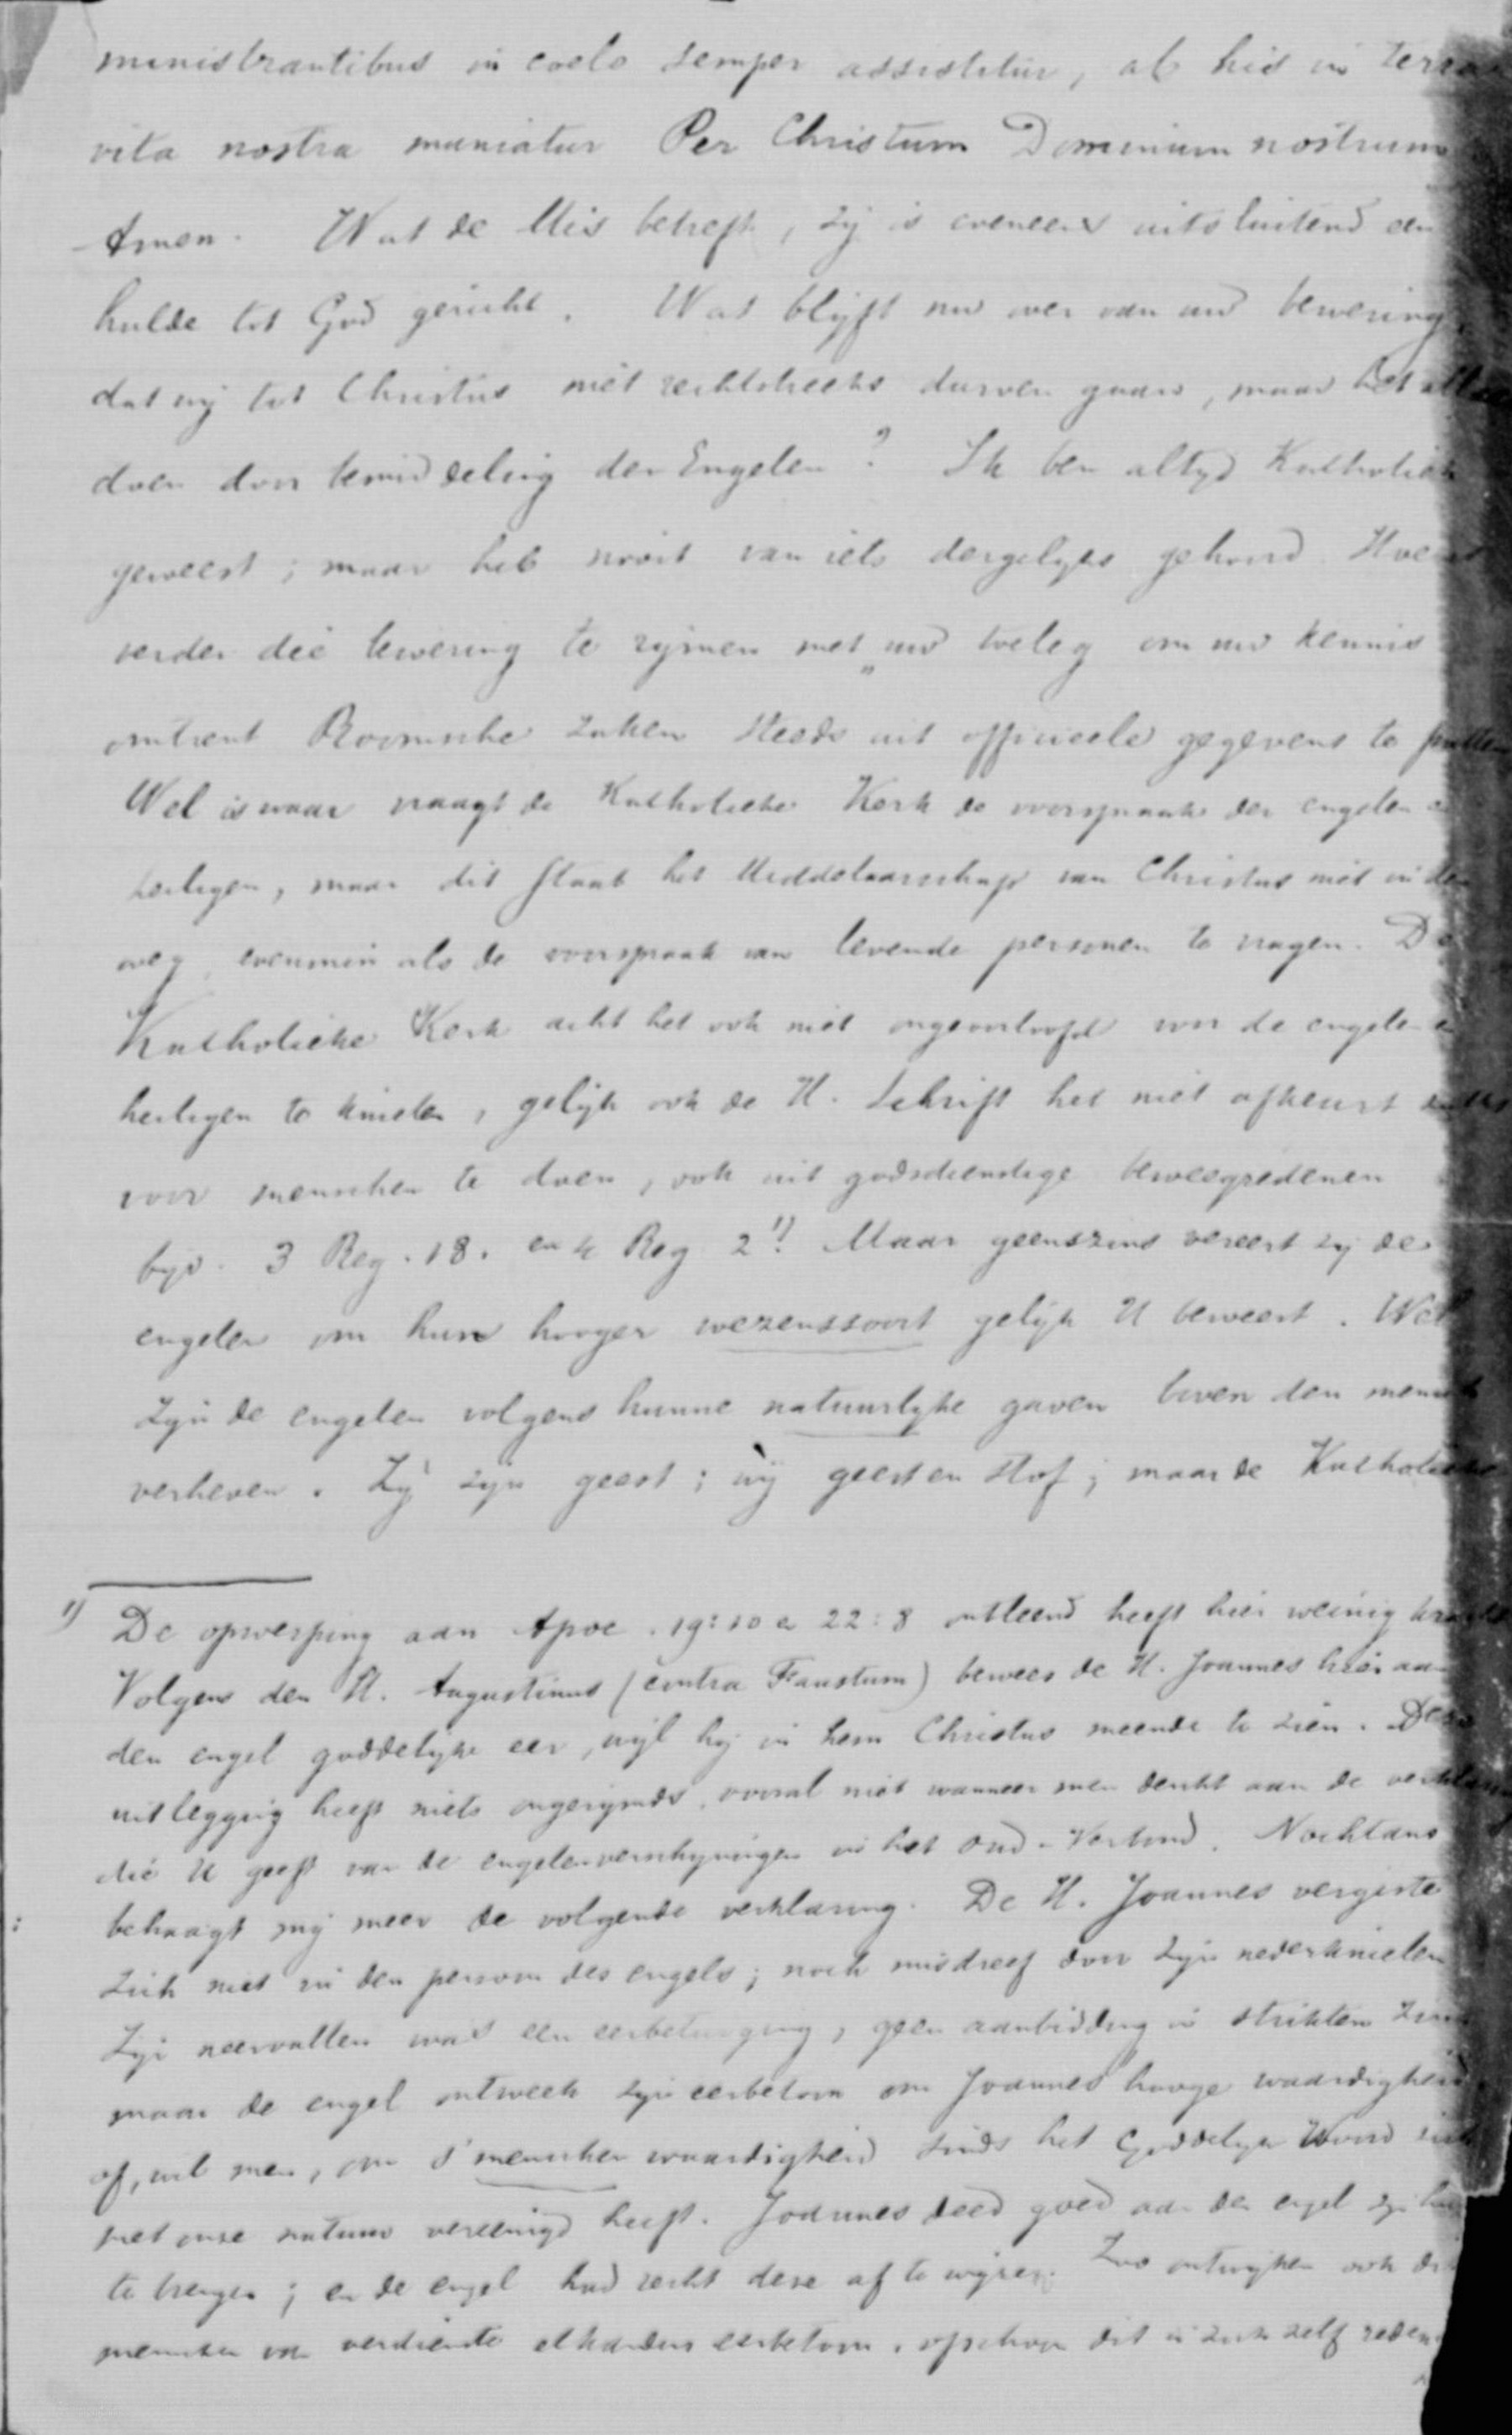 ministrantibus in coelo semper assistitur, ab his in terra
vita nostra muniatur Per Christum Dominum nostrum
Amen. Wat de Mis betreft, zij is eveneens uitsluitend een
hulde tot God gericht. Wat blijft nu over van uw bewering,
dat wij tot Christus niet rechtstreeks durven gaan, maar het
doen door bemiddeling der Engelen? Ik ben altijd Katholiek
geweest; maar heb nooit van iets dergelijks gehoord. Hoe is
verder die bewering te rijmen met „uw toeleg om uw kennis
omtrent Roomsche zaken steeds uit officieele gegevens te putten
Wel is waar vraagt de Katholieke Kerk de voorspraak der engelen en
heiligen, maar dit staat het Middelaarschap van Christus niet in den
weg, evenmin als de voorspraak van levende personen te vragen. De
Katholieke Kerk acht het ook niet ongeoorloofd voor de engelen en
heiligen te knielen, gelijk ook de H. Schrift het niet afkeurt
voor menschen te doen, ook uit godsdienstige beweegredenen
bijv. 3 Reg. 18. en 4 Reg 2 1). Maar geenszins vereert zij de
engelen om hun hooger wezenssoort gelijk U beweert. Wel
zijn de engelen volgens hunne natuurlijke gaven boven den mensch
verheven. Zij zijn geest; wij geest en stof; maar de Katholieke
1) De opwerping aan Apoc. 19:10 en 22:8 ontleend heeft hier weinig kracht
Volgens den H. Augustinus (contra Faustum) bewees de H. Joannes hier aan
den engel goddelijke eer, wijl hij in hem Christus meende te zien. Deze
uitlegging heeft niets ongerijmds, vooral niet wanneer men denkt aan de verklaring
die U geeft van de engelenverschijningen in het Oud-Verbond. Nochtans
behaagt mij meer de volgende verklaring. De H. Joannes vergiste
zich niet in den persoon des engels; noch misdreef door zijn nederknielen
Zijn neervallen was een eerbetuiging, geen aanbidding in strikten zin
maar de engel ontweek zijn eerbetoon om Joannes' hooge waardigheid
of, wil men, om s'menschen waardigheid sinds het Goddelijk Woord zich
met onze natuur vereenigd heeft. Joannes deed goed aan den engel zijn
te brengen; en de engel had recht deze af te wijzen. Zoo ontwijken ook
menschen van verdienste elkanders eerbetoon, ofschoon dit in zich zelf